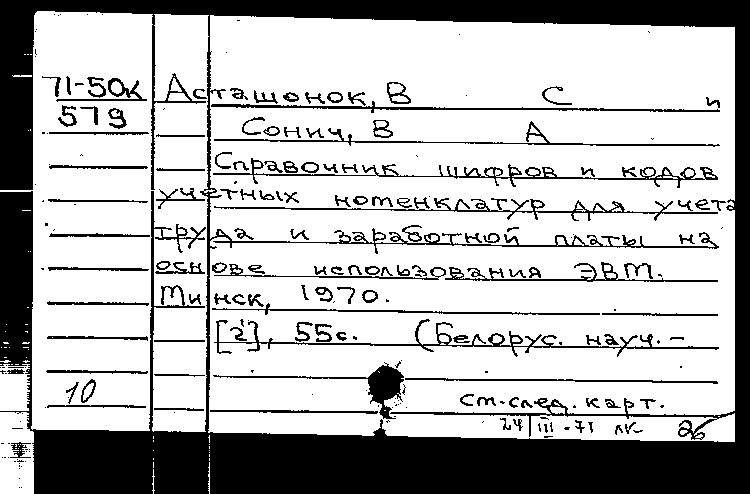 71-50к
579
Асташонок, В С и
Сонич, В А
Справочник шифров и кодов
учетных номенклатур для учета
труда и заработной платы на
основе использования ЭВМ.
Минск, 1970.
[2], 55с. (Белорус. науч.-
10
см.след. карт.
24/III-71 лк 2б